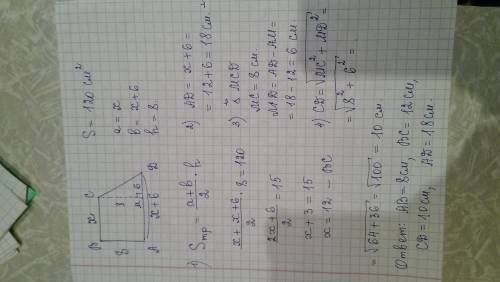 B x C
8 8
A x+6 D
S = 120 см²
a = x
b = x+6
h = 8
1) Sтр = a+b / 2 · h
x + x+6 / 2 · 8 = 120
2x+6 / 2 = 15
x+3 = 15
x = 12 – BC
2) AD = x+6 =
= 12+6 = 18 см²
3) Δ MCD
MC = 8 см
MD = AD – AM =
= 18 – 12 = 6 см
4) CD = √MC² + MD² =
= √8² + 6² =
= √64+36 = √100 = 10 см
Ответ: AB = 8 см, BC = 12 см,
CD = 10 см, AD = 18 см.